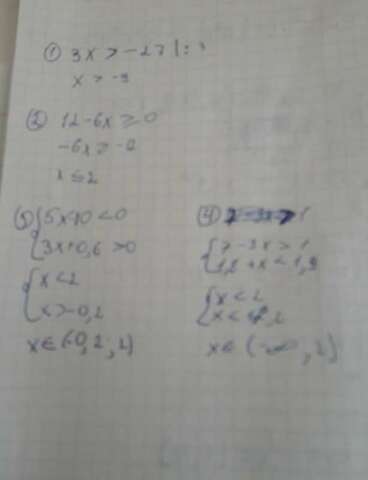 ① 3x > -27 | : 3
x > -9
② 12-6x ≥ 0
-6x ≥
x ≤ 2
③ { 5x-10 < 0
3x+0,6 > 0
{ x < 2
x > -0,2
x ∈ (-0,2; 2)
④
{ 7-3x > 1
1,2+x < 1,9
{ x < 2
x <
x ∈ (-∞, 2)